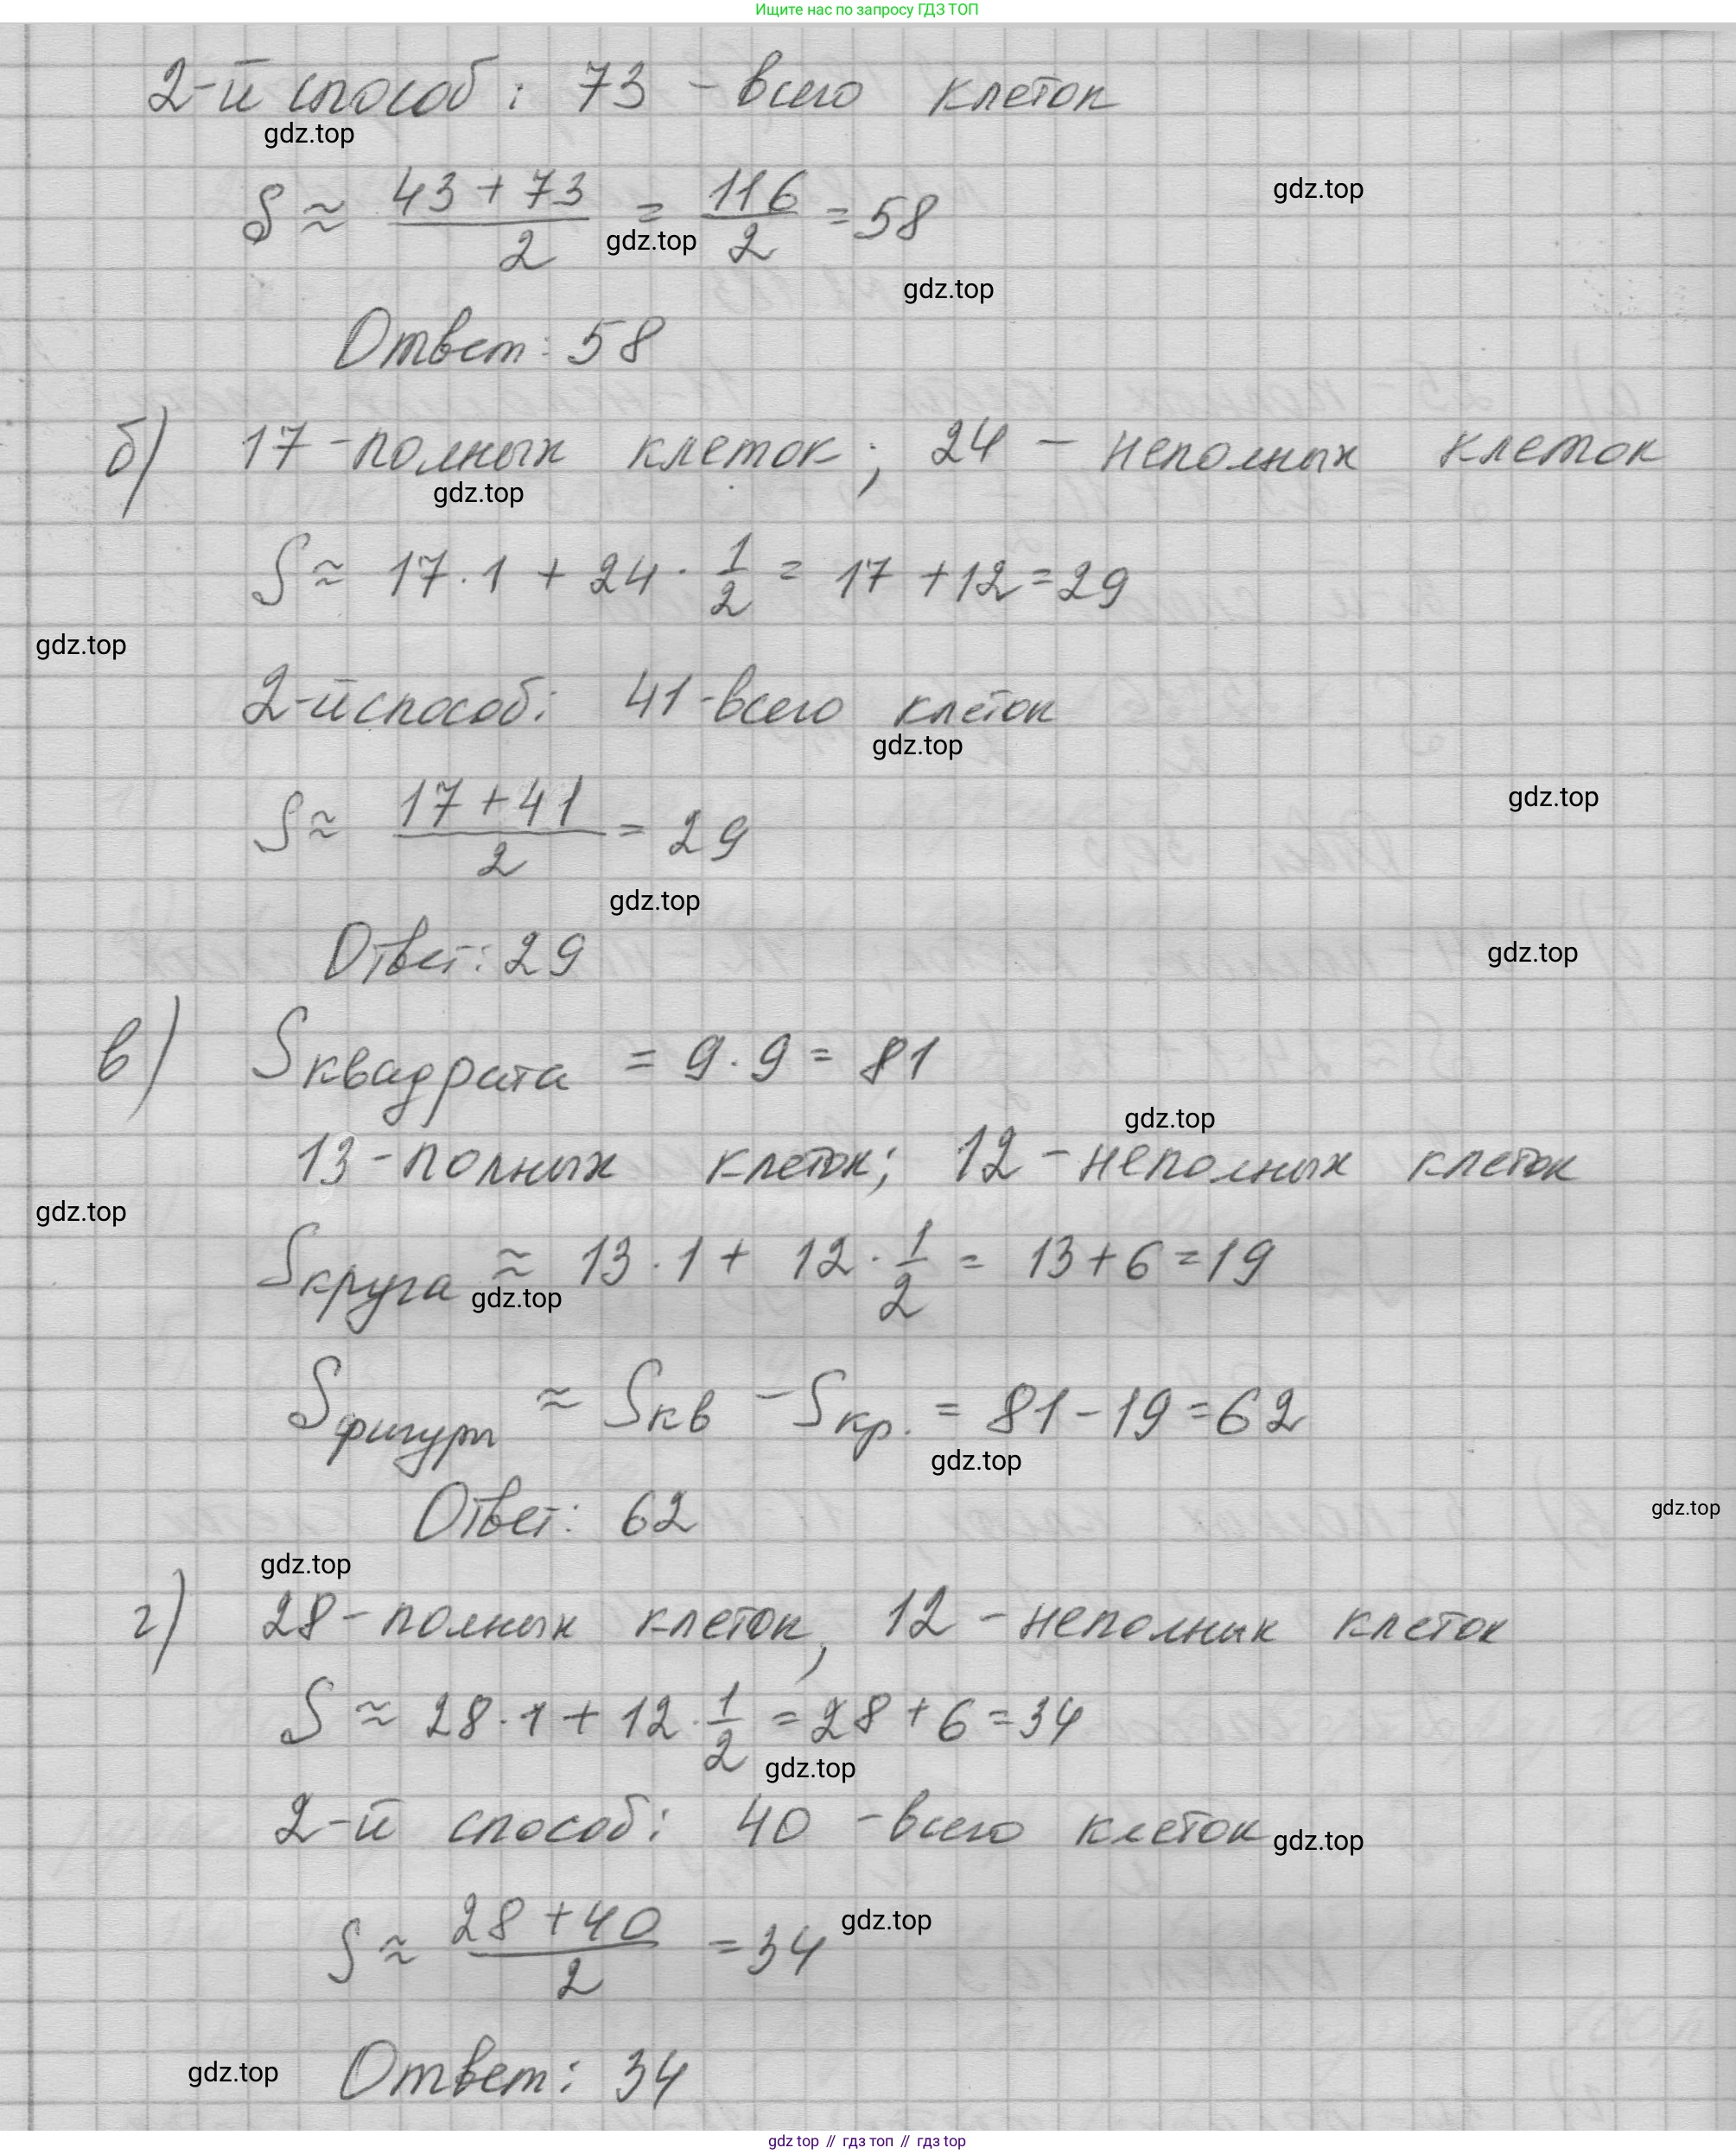 Ищите нас по запросу ГДЗ ТОП
2-й способ: 73 - всего клеток
gdz.top
gdz.top
S ≈ (43 + 73)/2 = 116/2 = 58
gdz.top
gdz.top
Ответ: 58
б) 17 - полных клеток; 24 - неполных клеток
gdz.top
S ≈ 17 · 1 + 24 · 1/2 = 17 + 12 = 29
gdz.top
2-й способ: 41 - всего клеток
gdz.top
gdz.top
S ≈ (17 + 41)/2 = 29
gdz.top
Ответ: 29
gdz.top
в) Sквадрата = 9 · 9 = 81
gdz.top
13 - полных клеток; 12 - неполных клеток
gdz.top
Sкруга ≈ 13 · 1 + 12 · 1/2 = 13 + 6 = 19
gdz.top
Sфигуры ≈ Sкв - Sкр. = 81 - 19 = 62
gdz.top
Ответ: 62
gdz.top
gdz.top
г) 28 - полных клеток, 12 - неполных клеток
S ≈ 28 · 1 + 12 · 1/2 = 28 + 6 = 34
gdz.top
2-й способ: 40 - всего клеток
gdz.top
S ≈ (28 + 40)/2 = 34
gdz.top
Ответ: 34
gdz.top
gdz top // гдз топ // gdz top